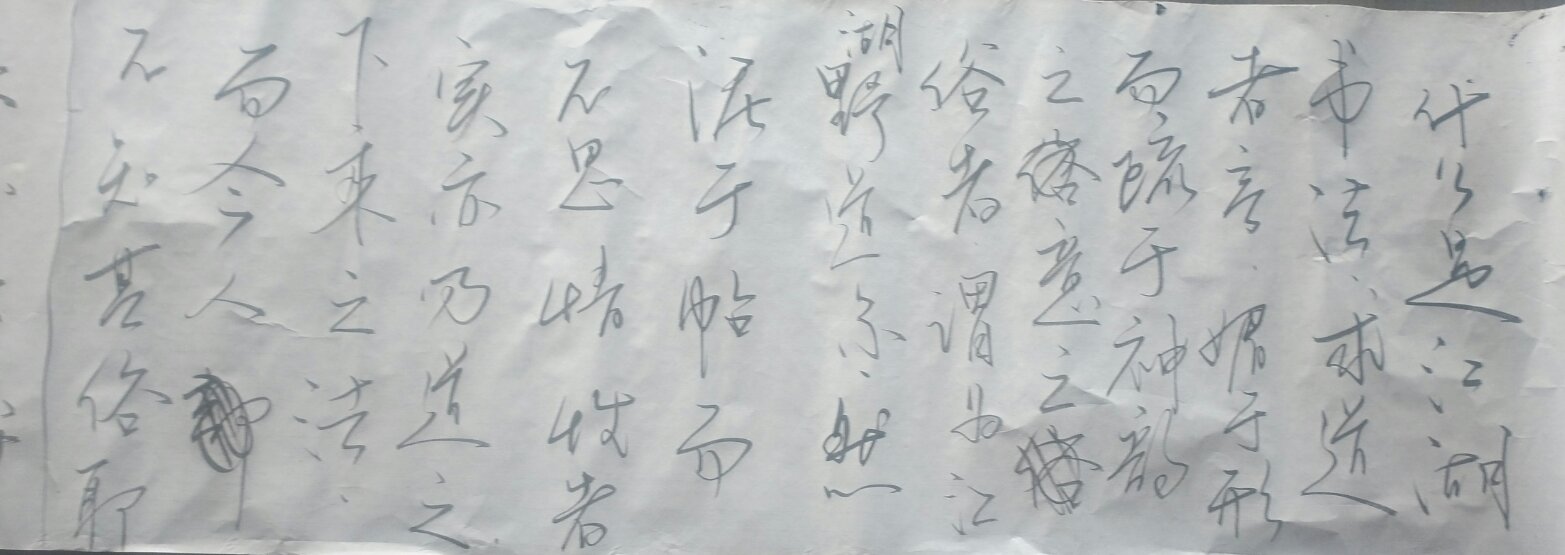 什么是江湖
书法：求道
者言：媚于形
而疏于神韵
之意之
俗者谓为江
湖野道尔：然
泥于帖而
不思情性者
实亦乃道之
下乘之法：
而今人
不知其俗耶